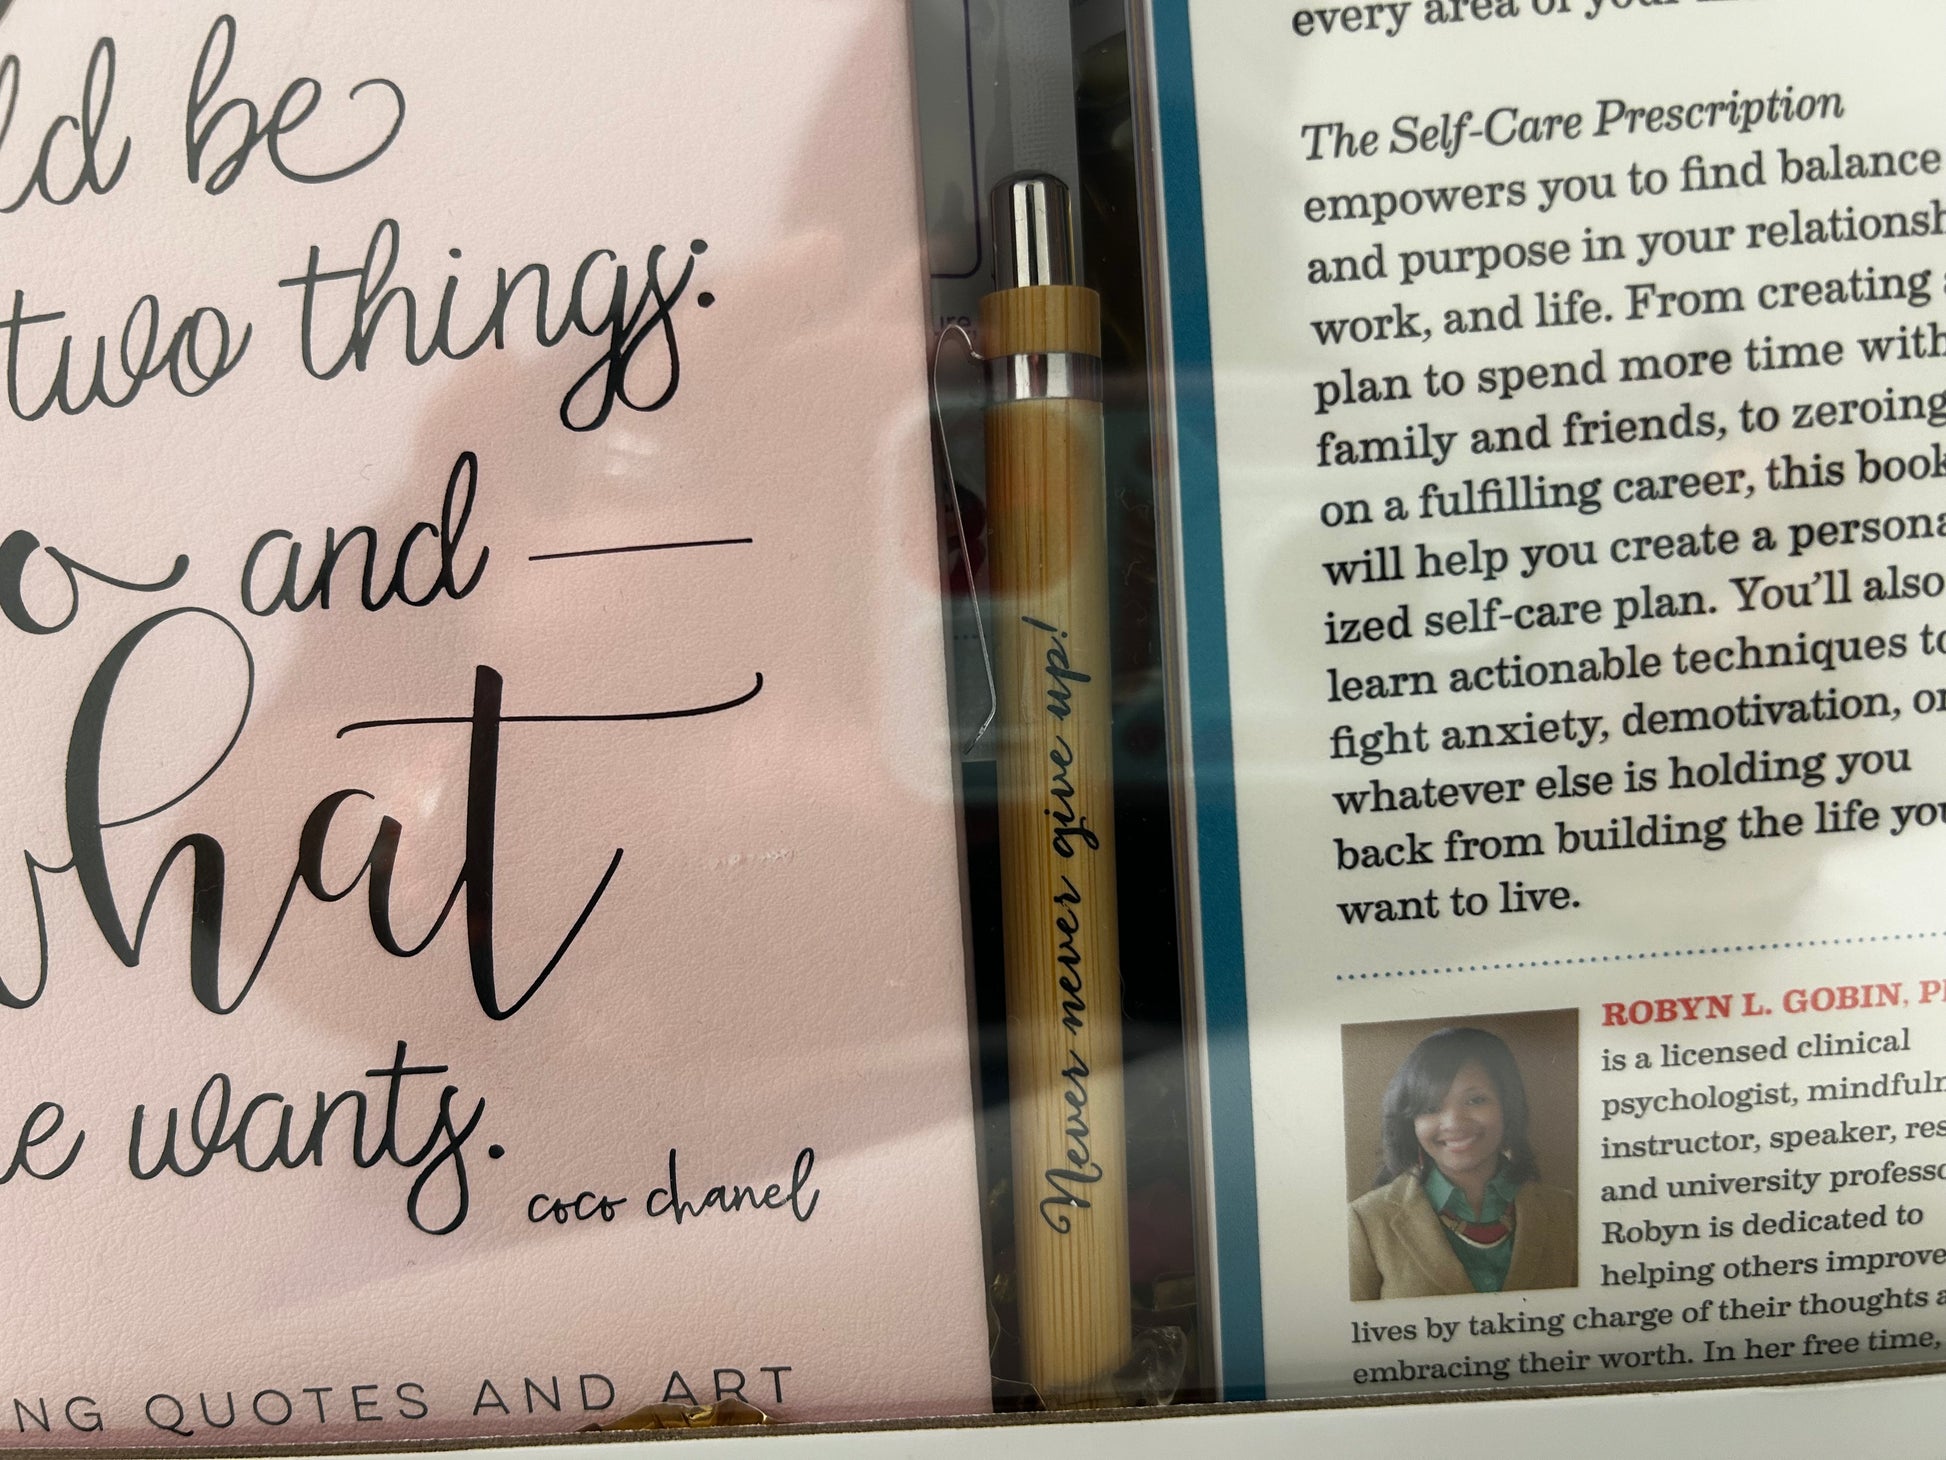 be
two things:
and
what
wants.
coco chanel
QUOTES AND ART
Never never give up!
every area of your
The Self-Care Prescription
empowers you to find balance
and purpose in your
work, and life. From creating
plan to spend more time with
family and friends, to zeroing
on a fulfilling career, this book
will help you create a persona
ized self-care plan. You'll also
learn actionable techniques to
fight anxiety, demotivation, or
whatever else is holding you
back from building the life you
want to live.
ROBYN L. GOBIN,
is a licensed clinical
psychologist,
instructor, speaker,
and university
Robyn is dedicated to
helping others improve
lives by taking charge of their thoughts
embracing their worth. In her free time,